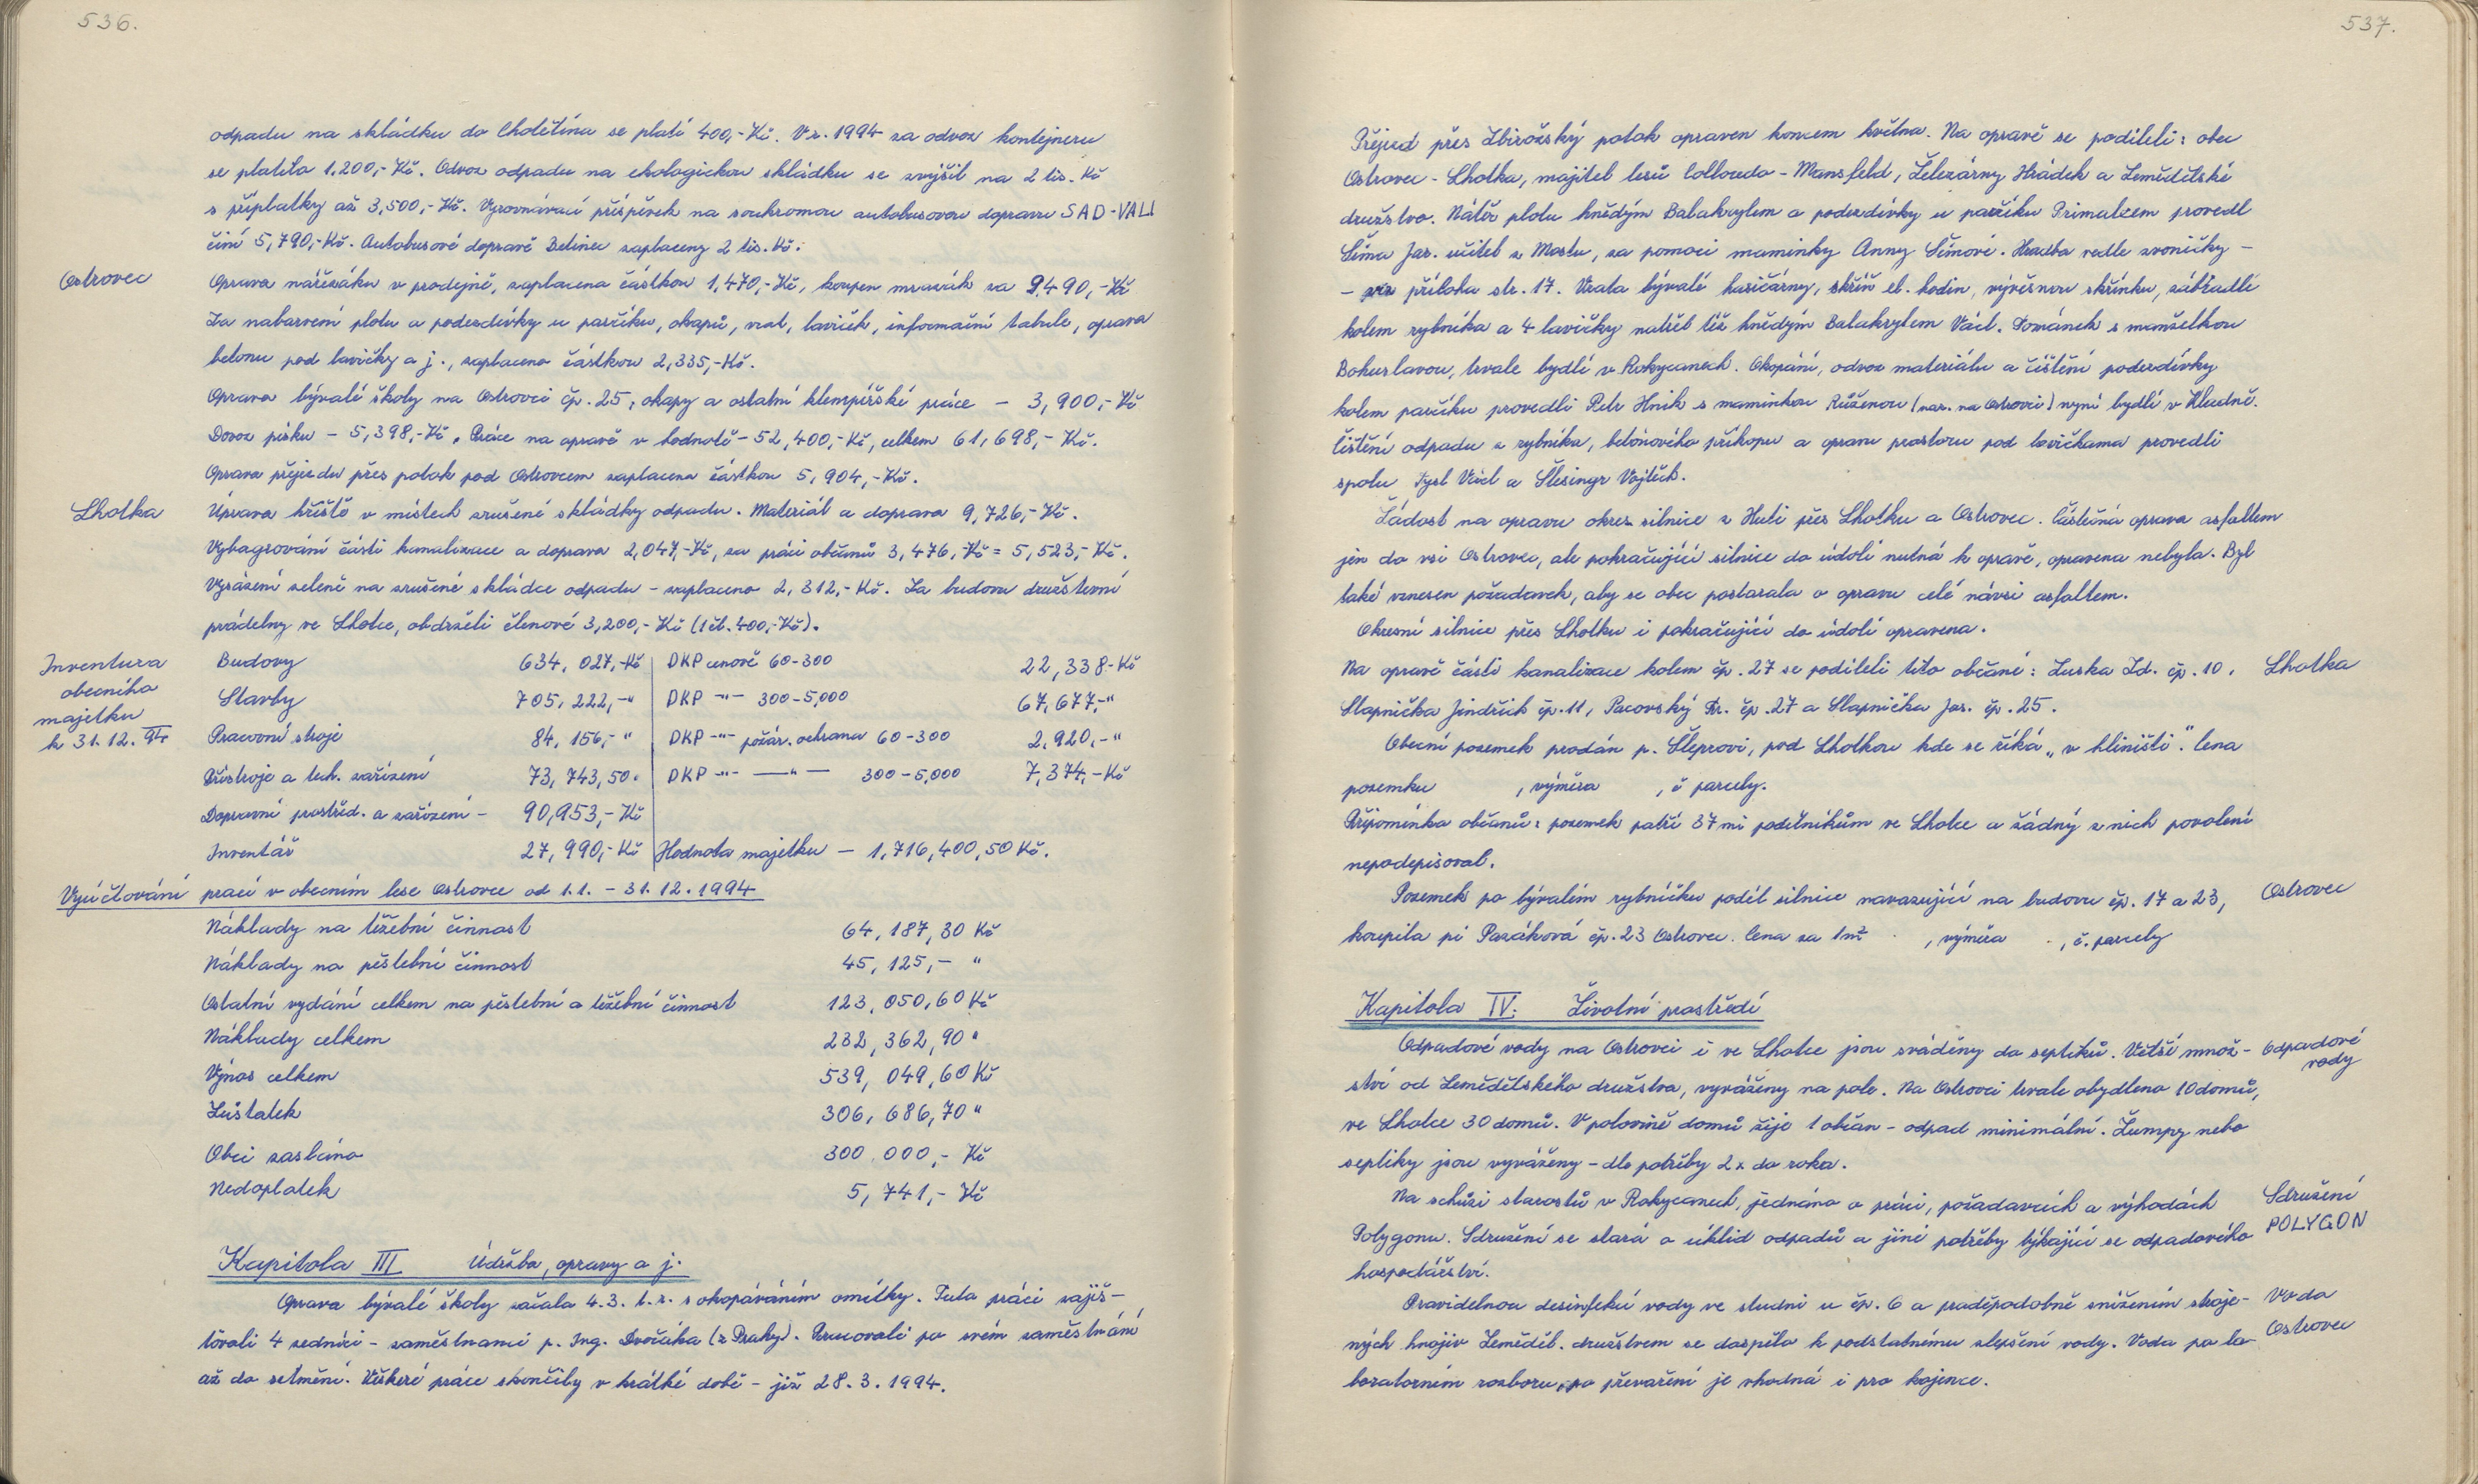 536.
odpadu na skládku do Cholětína se platí 400,-Kč. V r. 1994 za odvoz kontejneru
se platilo 1.200,-Kč. Odvoz odpadu na ekologickou skládku se zvýšil na 2 tis. Kč
s příplatky až 3,500,-Kč. Vyrovnávací příspěvek na soukromou autobusovou dopravu SAD-VALI
činí 5,790,-Kč. Autobusové dopravě Betinec zaplaceny 2 tis. Kč.
Ostrovec
Oprava nářezáku v prodejně, zaplacena částkou 1,470,-Kč, koupen mrazák za 9,490,-Kč
Za nabarvení plotu a podezdívky u parčíku, okapů, vrat, laviček, informační tabule, oprava
betonu pod lavičky a j., zaplaceno částkou 2,335,-Kč.
Oprava bývalé školy na Ostrovci čp. 25, okapy a ostatní klempířské práce - 3,900,-Kč
Dovoz písku - 5,398,-Kč. Práce na opravě v hodnotě - 52,400,-Kč, celkem 61,698,-Kč.
Oprava přejezdu přes potok pod Ostrovcem zaplacena částkou 5,904,-Kč.
Lhotka
Úprava hřiště v místech zrušené skládky odpadu. Materiál a doprava 9,726,-Kč.
Vybagrování části kanalizace a doprava 2,047,-Kč, za práci občanů 3,476,-Kč = 5,523,-Kč.
Vysázení zeleně na zrušené skládce odpadu - zaplaceno 2,312,-Kč. Za budovu družstevní
prádelny ve Lhotce, obdrželi členové 3,200,-Kč (1 čl. 400,-Kč).
Inventura
obecního
majetku
k 31.12.94
Budovy 634,027,-Kč DKP cenově 60-300 22,338-Kč
Stavby 705,222,-" DKP -"- 300-5,000 67,677,-"
Pracovní stroje 84,156,-" DKP -"- požár. ochrana 60-300 2,920,-"
Přístroje a tech. zařízení 73,743,50" DKP -"- -"- 300-5,000 7,374,-Kč
Dopravní prostřed. a zařízení - 90,953,-Kč
Inventář 27,990,-Kč Hodnota majetku - 1,716,400,50 Kč.
Vyúčtování prací v obecním lese Ostrovce od 1.1. - 31.12.1994
Náklady na těžební činnost 64,187,30 Kč
Náklady na pěstební činnost 45,125,- "
Ostatní vydání celkem na pěstební a těžební činnost 123,050,60 Kč
Náklady celkem 232,362,90 "
Výnos celkem 539,049,60 Kč
Zůstatek 306,686,70 "
Obci zasláno 300.000,- Kč
Nedoplatek 5,741,- Kč
Kapitola III Údržba, opravy a j.
Oprava bývalé školy začala 4.3. t.r. s okopáváním omítky. Tuto práci zajiš-
ťovali 4 zedníci - zaměstnanci p. Ing. Dvořáka (z Prahy). Pracovali po svém zaměstnání
až do setmění. Věškeré práce skončily v krátké době - již 28.3.1994.
537.
Přejezd přes Zbirožský potok opraven koncem května. Na opravě se podíleli: obec
Ostrovec - Lhotka, majitel lesů Colloredo - Mansfeld, Železárny Hrádek a Zemědělské
družstvo. Nátěr plotu hnědým Balakrylem a podezdívky u parčíku Primalexem provedl
Šíma Jar. učitel z Mostu, za pomoci maminky Anny Šímové. Hradba vedle zvoničky -
- příloha str. 17. Vrata bývalé hasičárny, skříň el. hodin, vývěsnou skřínku, zábradlí
kolem rybníka a 4 lavičky natřel též hnědým Balakrylem Václ. Tománek s manželkou
Bohuslavou, trvale bydlí v Rokycanech. Okopání, odvoz materiálu a čištění podezdívky
kolem parčíku provedli Petr Hník s maminkou Růženou (nar. na Ostrovci) nyní bydlí v Kladně.
Čištění odpadu z rybníka, betónového příkopu a opravu prostoru pod lavičkama provedli
spolu Tysl Václ a Šlesinger Vojtěch.
Žádost na opravu okres. silnice z Huti přes Lhotku a Ostrovec. Částečná oprava asfaltem
jen do vsi Ostrovec, ale pokračující silnice do údolí nutná k opravě, opravena nebyla. Byl
také vznesen požadavek, aby se obec postarala o opravu celé návsi asfaltem.
Okresní silnice přes Lhotku i pokračující do údolí opravena.
Na opravě části kanalizace kolem čp. 27 se podíleli tito občané: Luska Zd. čp. 10,
Lhotka
Slapnička Jindřich čp. 11, Pacovský Fr. čp. 27 a Slapnička Jar. čp. 25.
Obecní pozemek prodán p. Šleprovi, pod Lhotkou kde se říká „v hliništi". Cena
pozemku , výměra , č parcely.
Připomínka občanů: pozemek patří 37 mi podílníkům ve Lhotce a žádný z nich povolení
nepodepisoval.
Pozemek po bývalém rybníčku podél silnice navazující na budovu čp. 17 a 23,
Ostrovec
koupila pí Pazáková čp. 23 Ostrovec. Cena za 1m² , výměra , č. parcely
Kapitola IV. Životní prostředí
Odpadové vody na Ostrovci i ve Lhotce jsou sváděny do septiků. Větší množ-
Odpadové
vody
ství od Zemědělského družstva, vyváženy na pole. Na Ostrovci trvale obydleno 10 domů,
ve Lhotce 30 domů. V polovině domů žije 1 občan - odpad minimální. Žumpy nebo
septiky jsou vyváženy - dle potřeby 2x do roka.
Na schůzi starostů v Rokycanech, jednáno o práci, požadavcích a výhodách
Sdružení
POLYGON
Polygonu. Sdružení se stará o úklid odpadů a jiné potřeby týkající se odpadového
hospodářství.
Pravidelnou desinfekcí vody ve studni u čp. 6 a pravděpodobně snížením stroje-
Voda
Ostrovec
ných hnojiv Zeměděl. družstvem se dospělo k podstatnému zlepšení vody. Voda po la-
boratorním rozboru, po převaření je vhodná i pro kojence.